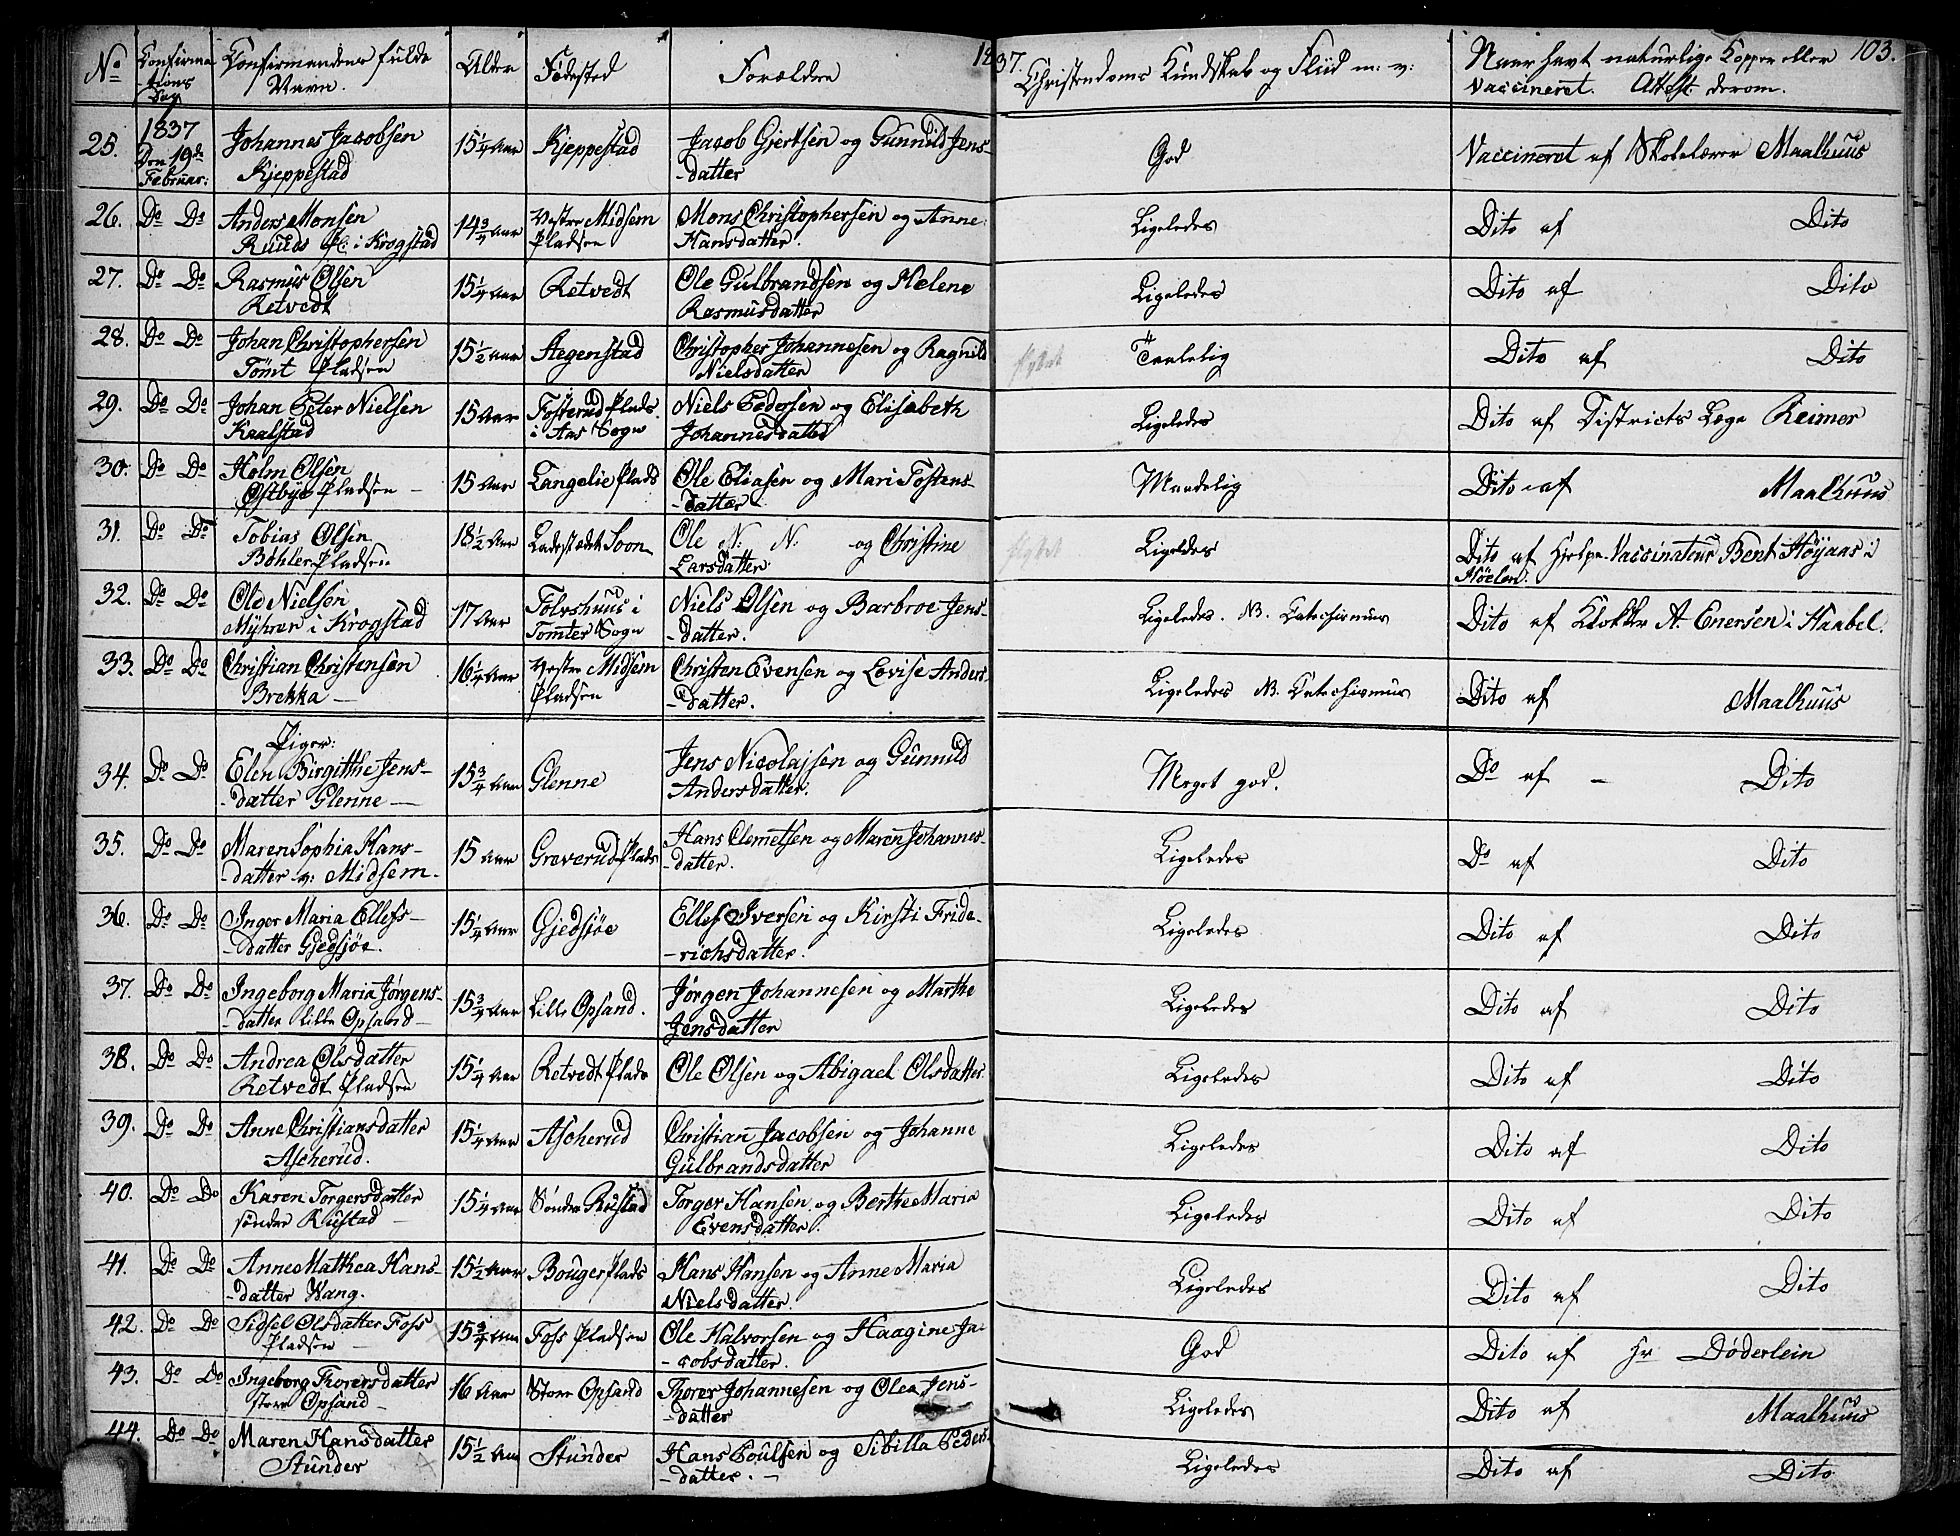 No Confirmations Dag Confirmandens fulde Navn. Alder Fødested Forældre 1837. Christendoms Kundskab og Fliid m: v: Naar havt naturlige Kopper eller Vaccineret. Attest derom. 103.
25. 1837 Den 19de Februar: Johannes Jacobsen Kjeppestad 15 1/4 Aar Kjeppestad Jacob Gjertsen og Gunnild Jens-datter God Vaccineret af Skolelærer Maalhuus
26. Do Do Anders Monsen Ruuds Pl: i Krogstad 14 3/4 Aar Vestre Midsem Pladsen Mons Christophersen og Anne Hansdatter. Ligeledes Dito af Dito
27. Do Do Rasmus Olsen Retvedt 15 1/4 Aar Retvedt Ole Gulbrandsen og Helene Rasmusdatter Ligeledes Dito af Dito
28. Do Do Johan Christophersen Tomt Pladsen 15 1/2 Aar Aegenstad Christopher Johannesen og Ragnild Nielsdatter flytet Taalelig Dito af Dito
29. Do Do Johan Peter Nielsen Kaalstad 15 Aar Fosterud Plads. i Aas Sogn Niels Pedersen og Elisabeth Johannesdatter Ligeledes Dito af Districts Læge Reimer
30. Do Do Holm Olsen Østbye Pladsen 15 Aar Langelie Plads Ole Eliasen og Mari Tostens-datter Maadelig Dito af Maalhuus
31. Do Do Tobias Olsen Bøhler Pladsen 18 1/2 Aar Ladestædet Soon Ole N: N: og Christine Larsdatter flytet Ligeledes Dito af Hjelpe-Vaccinateur Bent Høyaas i Høelen.
32. Do Do Ole Nielsen Myhrer i Krogstad 17 Aar Tolvshuus i Tomter Sogn Niels Olsen og Barbroe Jens-datter. Ligeledes. NB. Catechismus Dito af Klokker A. Enersen i Haabel.
33. Do Do Christian Christensen Brekka 16 1/4 Aar Vestre Midsem Pladsen Christen Evensen og Lovise Anders-datter. Ligeledes NB. Catechismus Dito af Maalhuus
Piger:
34. Do Do Elen Birgitthe Jens-datter Glenne 15 3/4 Aar Glenne Jens Nicolajsen og Gunnild Andersdatter. Meget god. Do af - Dito
35. Do Do Maren Sophia Hans-datter v: Midsem. 15 Aar Greverud Plads Hans Clemetsen og Maren Johannes-datter. Ligeledes Do af Dito
36. Do Do Inger Maria Ellefs-datter Gjedsjøe. 15 1/4 Aar Gjedsjøe Ellef Iversen og Kirsti Fride-richsdatter. Ligeledes Dito af Dito
37. Do Do Ingeborg Maria Jørgens-datter lille Opsand 15 3/4 Aar Lille Opsand. Jørgen Johannesen og Marthe Jensdatter Ligeledes Dito af Dito
38. Do Do Andrea Olsdatter Retvedt Pladsen 15 1/4 Aar Retvedt Plads Ole Olsen og Abigael Olsdatter Ligeledes Dito af Dito
39. Do Do Anne Christiansdatter Ascherud. 15 1/4 Aar Ascherud Christian Jacobsen og Johanne Gulbrandsdatter Ligeledes Dito af Dito
40. Do Do Karen Torgersdatter søndre Rustad 15 1/4 Aar Søndre Rustad Torger Hansen og Berthe Maria Evensdatter. Ligeledes Dito af Dito
41. Do Do Anne Mathea Hans-datter Vang. 15 1/2 Aar Bouger Plads Hans Hansen og Anne Maria Nielsdatter. Ligeledes Dito af Dito
42. Do Do Sidsel Olsdatter Foss Pladsen 15 3/4 Aar Foss Pladsen Ole Halvorsen og Haagine Ja-cobsdatter. God Dito af Hr Døderlein
43. Do Do Ingeborg Thorersdatter store Opsand 16 Aar Store Opsand Thorer Johannesen og Olea Jens-datter Ligeledes Dito af Maalhuus
44. Do Do Maren Hansdatter Stunder 15 1/2 Aar Stunder Hans Poulsen og Sibilla Peders-datter. Ligeledes Dito af Dito